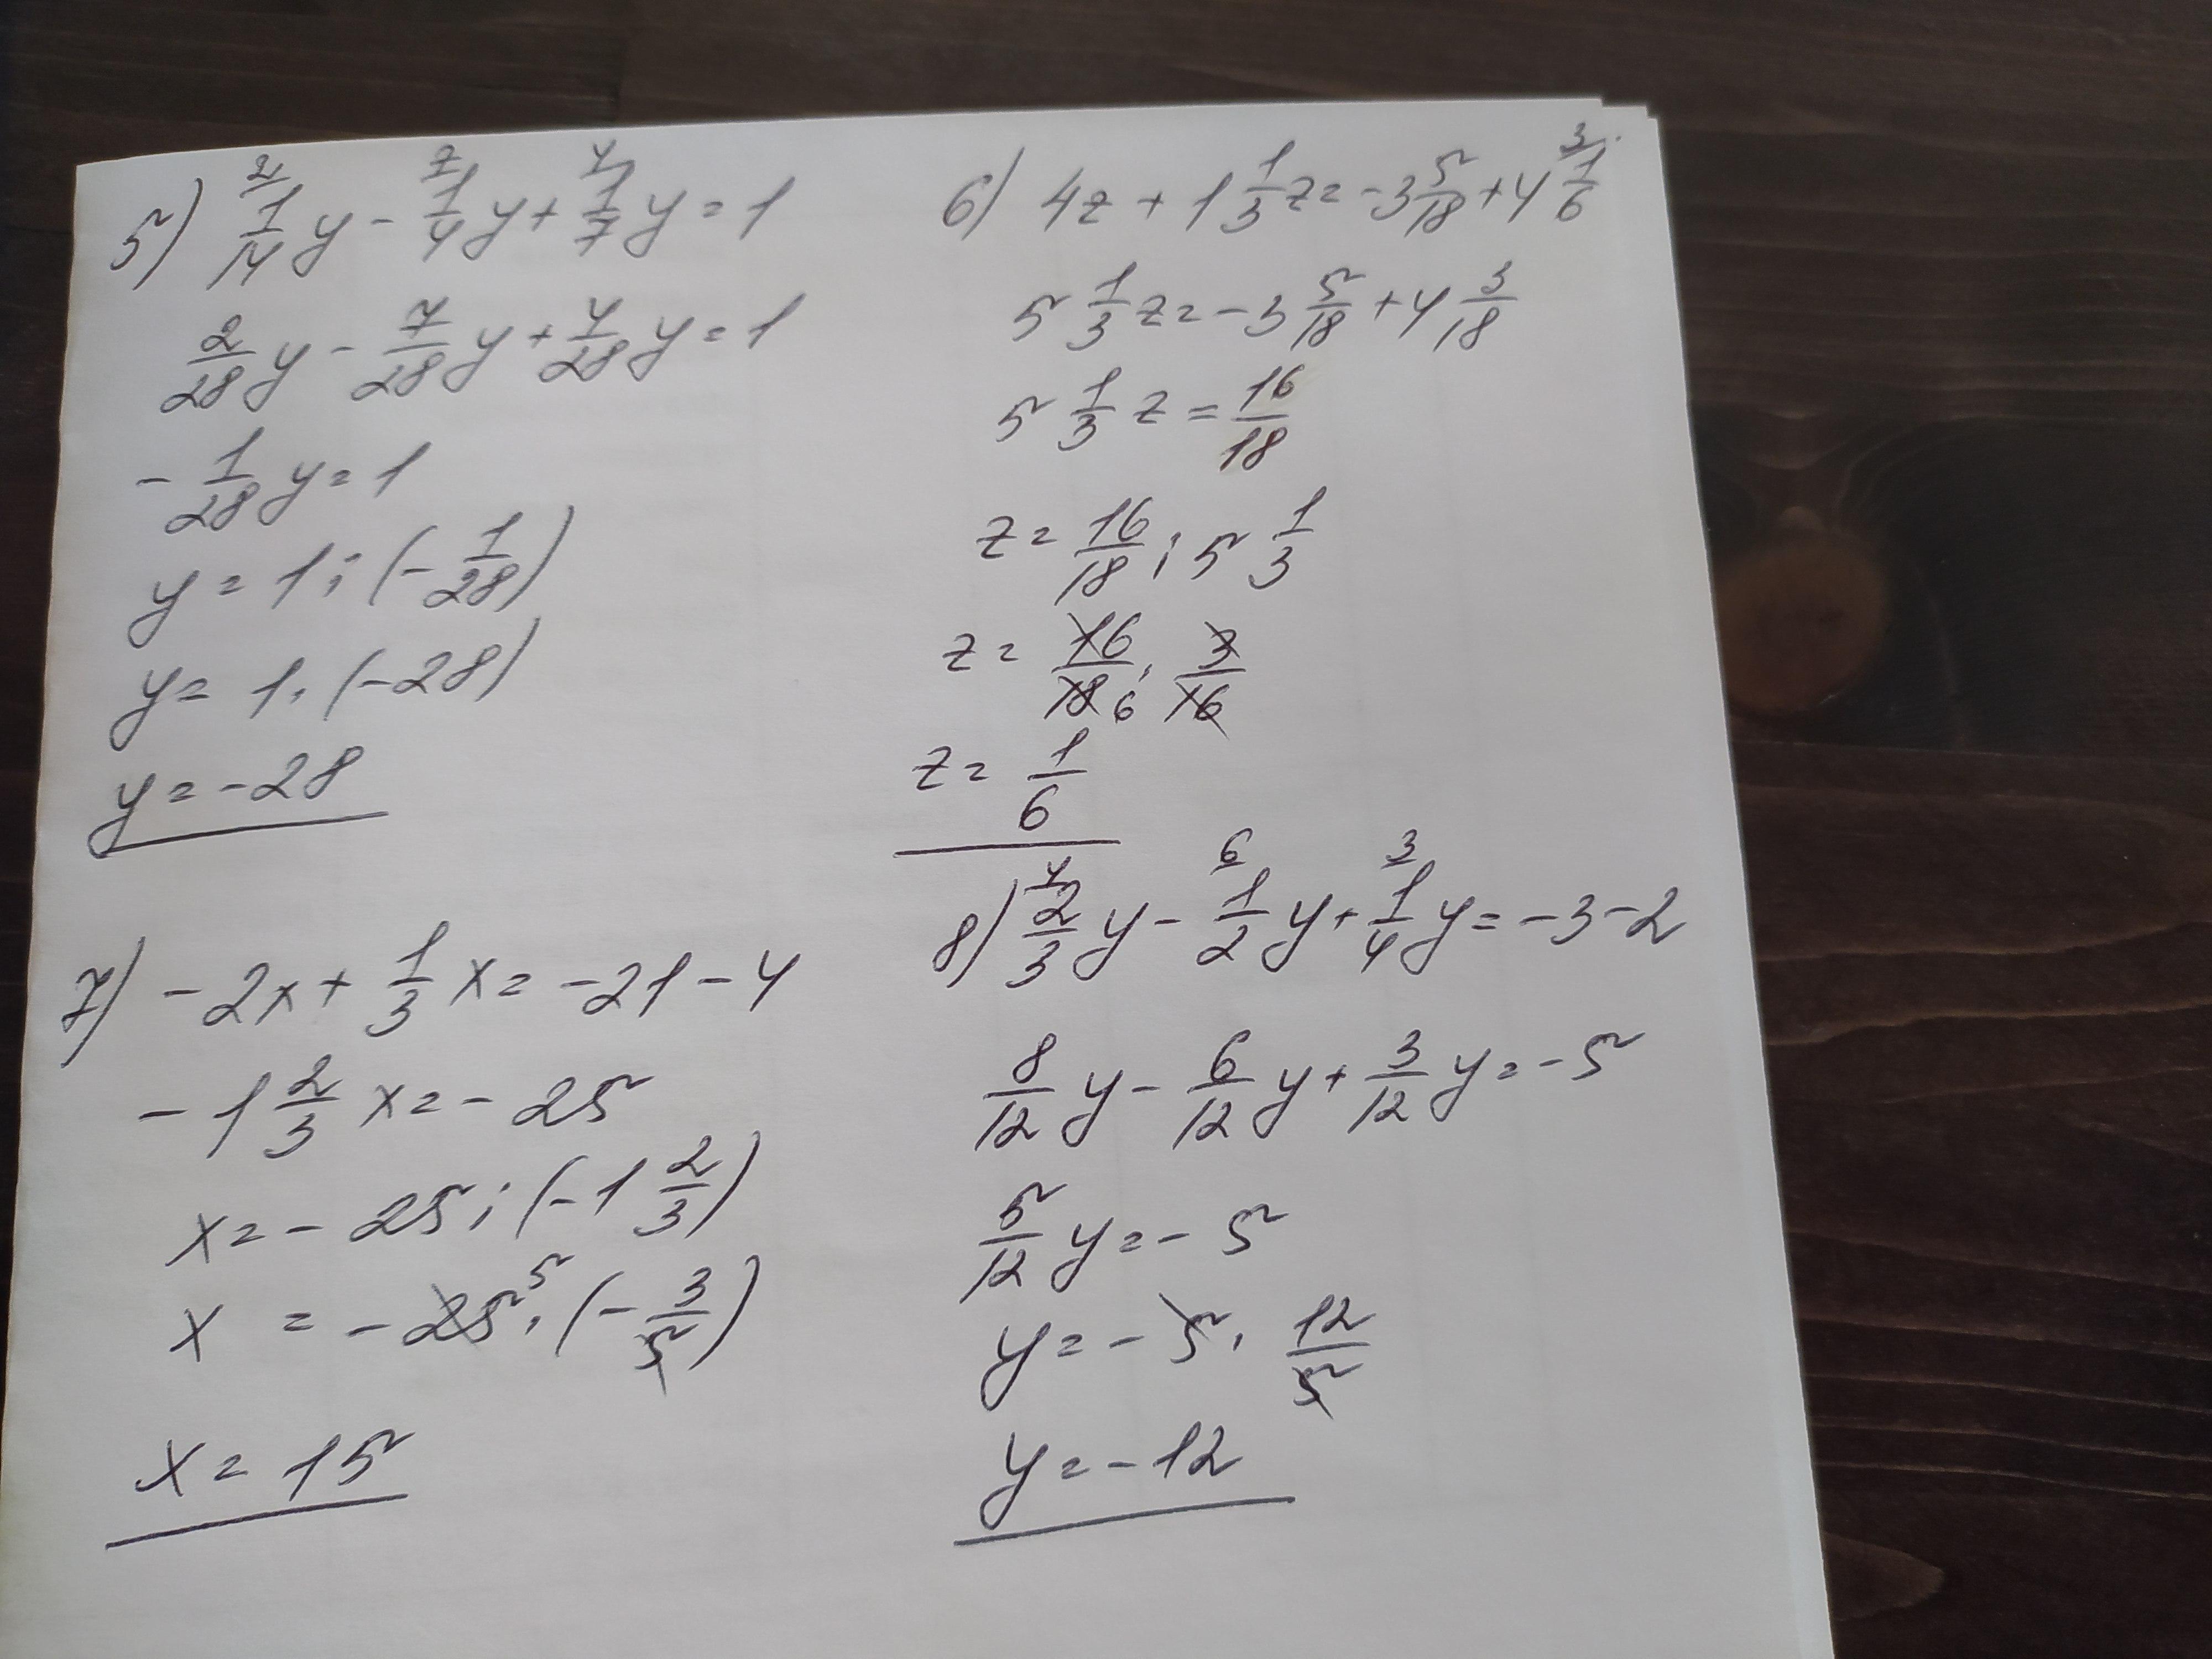 5) 1/14 y - 1/4 y + 1/7 y = 1
2/28 y - 7/28 y + 4/28 y = 1
- 1/28 y = 1
y = 1 : (- 1/28)
y = 1 · (-28)
y = -28
6) 4z + 1 1/3 z = -3 5/18 + 4 1/6
5 1/3 z = -3 5/18 + 4 3/18
5 1/3 z = 16/18
z = 16/18 : 5 1/3
z = 16/18 6 · 3/16
z = 1/6
7) -2x + 1/3 x = -21 - 4
-1 2/3 x = -25
x = -25 : (-1 2/3)
x = -25 5 · (- 3/5)
x = 15
8) 2/3 y - 1/2 y + 1/4 y = -3 - 2
8/12 y - 6/12 y + 3/12 y = -5
5/12 y = -5
y = -5 · 12/5
y = -12